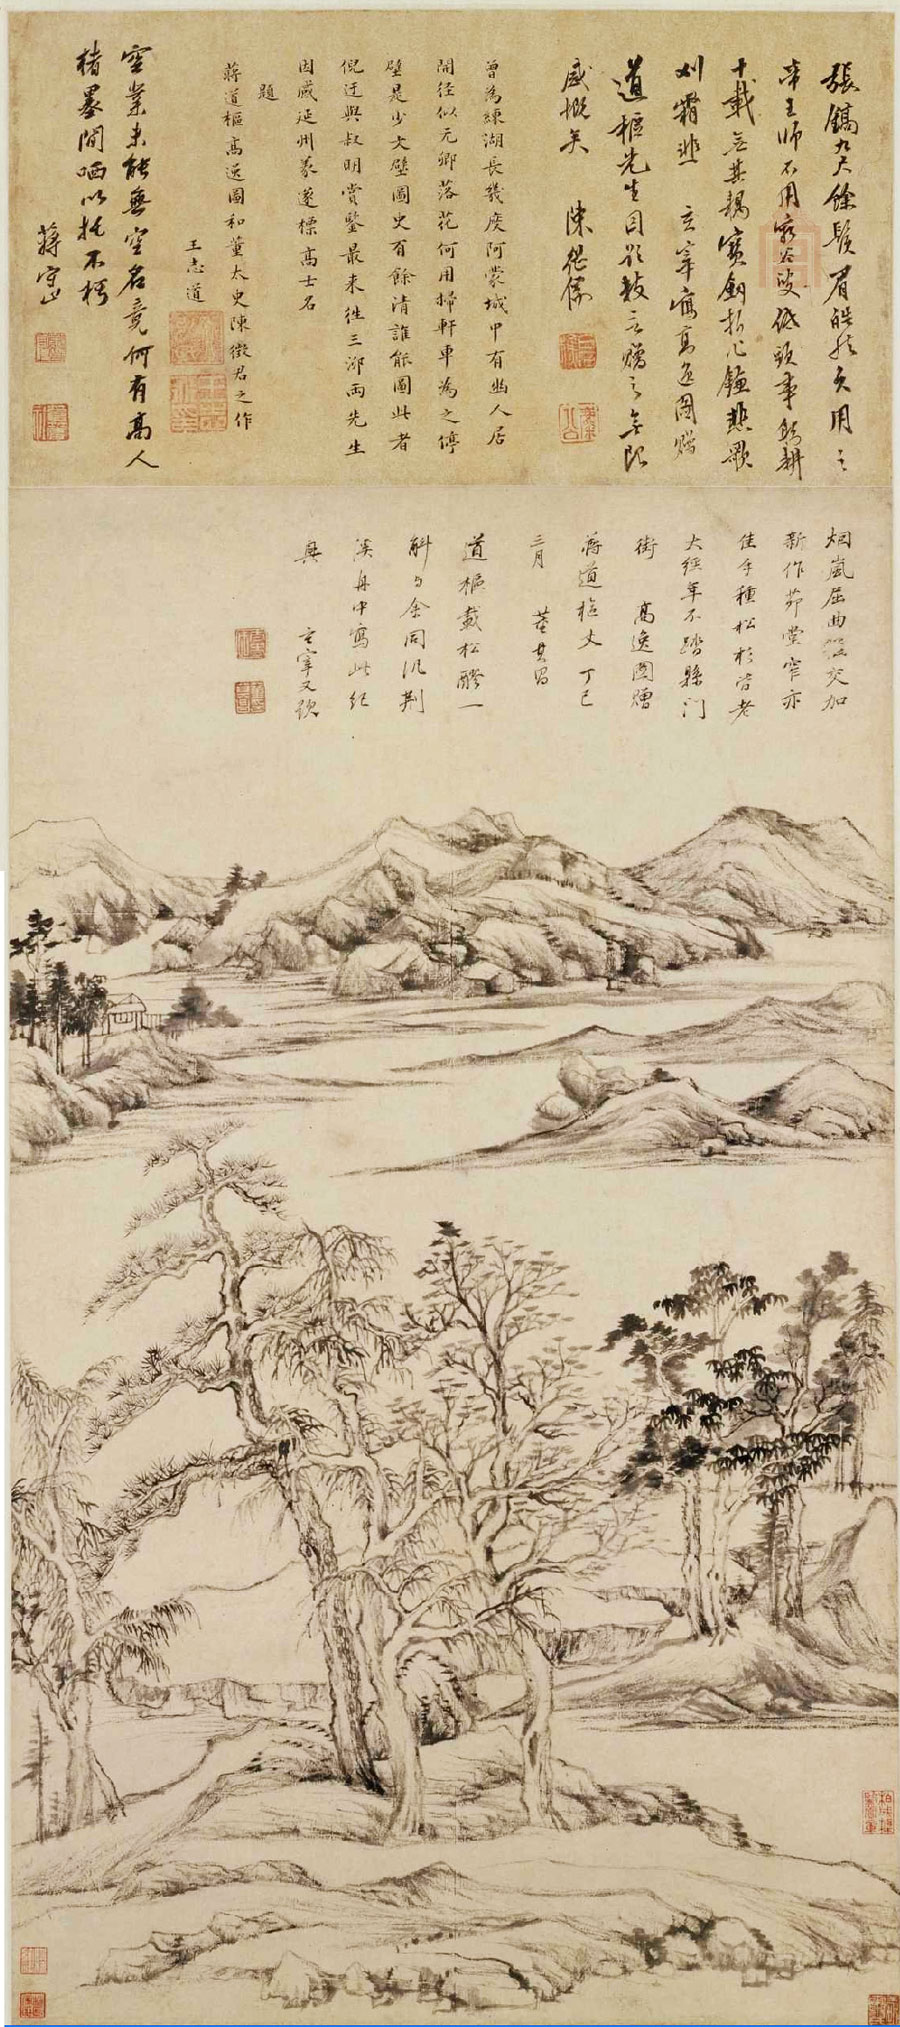 張鎬九尺餘鬚眉皓然矣用之
帝王師不用窮谷叟低頭事躬耕
十載無其耦寶劍折
刈霜韭　玄宰寫高逸圖贈
道樞先生因
感慨矣　陳繼儒
曾為練湖長幾度阿蒙城中有幽人居
開徑似元卿落花何用掃軒車為之停
壁是少文壁圖史有餘清誰能圖此者
倪迂與叔明賞鑒最來往三泖兩先生
因感延州蒙遂標高士名
題
蔣道樞高逸圖和董太史陳徵君之作
王志道
空業未能無空名竟何有高人
楮墨間哂以托不朽
蔣守止
烟嵐屈曲徑交加
新作茆堂窄亦
佳手種松杉皆老
大經年不踏縣門
街　高逸圖贈
蔣道樞丈丁巳
三月　董其昌
道樞載松醪一
斛與余同汎荆
溪舟中寫此紀
興　玄宰又識